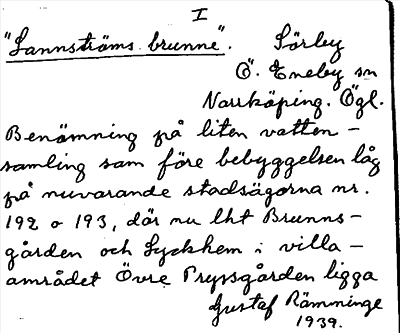 I
"Sannströms brunne". Sörby
Ö. Eneby sn
Norrköping. Ögl.
Benämning på liten vatten-
samling som före bebyggelsen låg
på nuvarande stadsägorna nr.
192 o 193, där nu lht Brunns-
gården och Lyckhem i villa-
området Övre Pryssgården ligga
Gustaf Rämminge
1939.